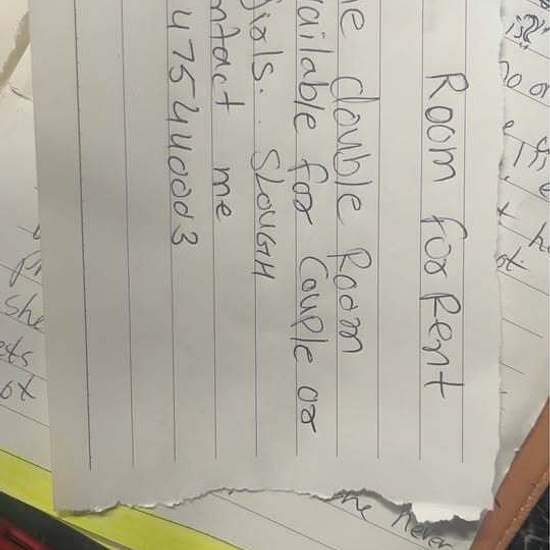 Room for Rent
ne double Room
ailable for Couple or
irls.. SLOUGH
ntact me
475440003
she
never